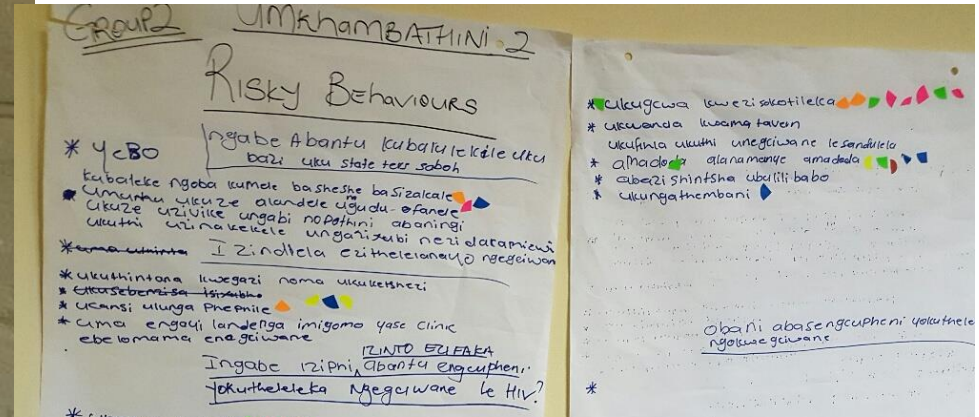 GROUP2 UMKHAMBATHINI.2
RISKY BEHAVIOURS
* YEBO
Ngabe Abantu kubalulekile uku
bazi uku state sabo
kubaleke ngoba kumele basheshe basizakale
* umuntu ukuze alandele ugudu ofanele
ukuze uzivike ungabi nopathini abaningi
ukuthi uzinakekele
* Izindlela ezithelelanayo ngegciwan
* ukuthintana kwegazi noma uketshezi
* ukusebenzisa
* ucansi ulunga Phephile
* uma engayi landenga imigomo yase clinic
ebelomama enegciwane
IZINTO EZIFAKA
Ingabe iziphi, abantu engcupheni
yokutheleleka Ngegciwane le HIV?
* ukugcwa kwezisokotileka
* ukwanda kwama tavern
ukufihla ukuthi unegciwane lesandulela
* amadoda alanamanye amadoda
* abazishintsha ubulili babo
* ukungathembani
obani abasengcupheni yokuthele
ngokwegciwane
*